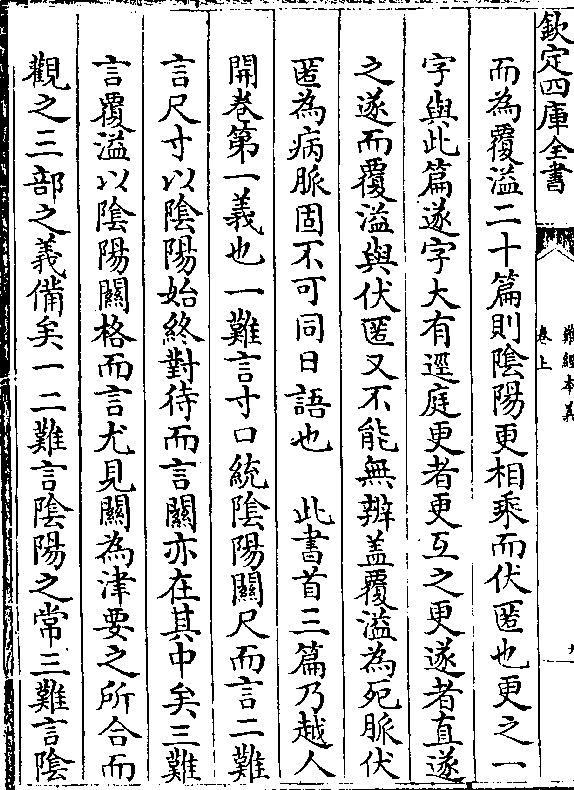 欽定四庫全書
難經本義
卷上
而為覆溢二十篇則陰陽更相乘而伏匿也更之一
字與此篇遂字大有逕庭更者更互之更遂者直遂
之遂而覆溢與伏匿又不能無辨盖覆溢為死脈伏
匿為病脈固不可同日語也　此書首三篇乃越人
開卷第一義也一難言寸口統陰陽關尺而言二難
言尺寸以陰陽始終對待而言關亦在其中矣三難
言覆溢以陰陽關格而言尤見關為津要之所合而
觀之三部之義備矣一二難言陰陽之常三難言陰